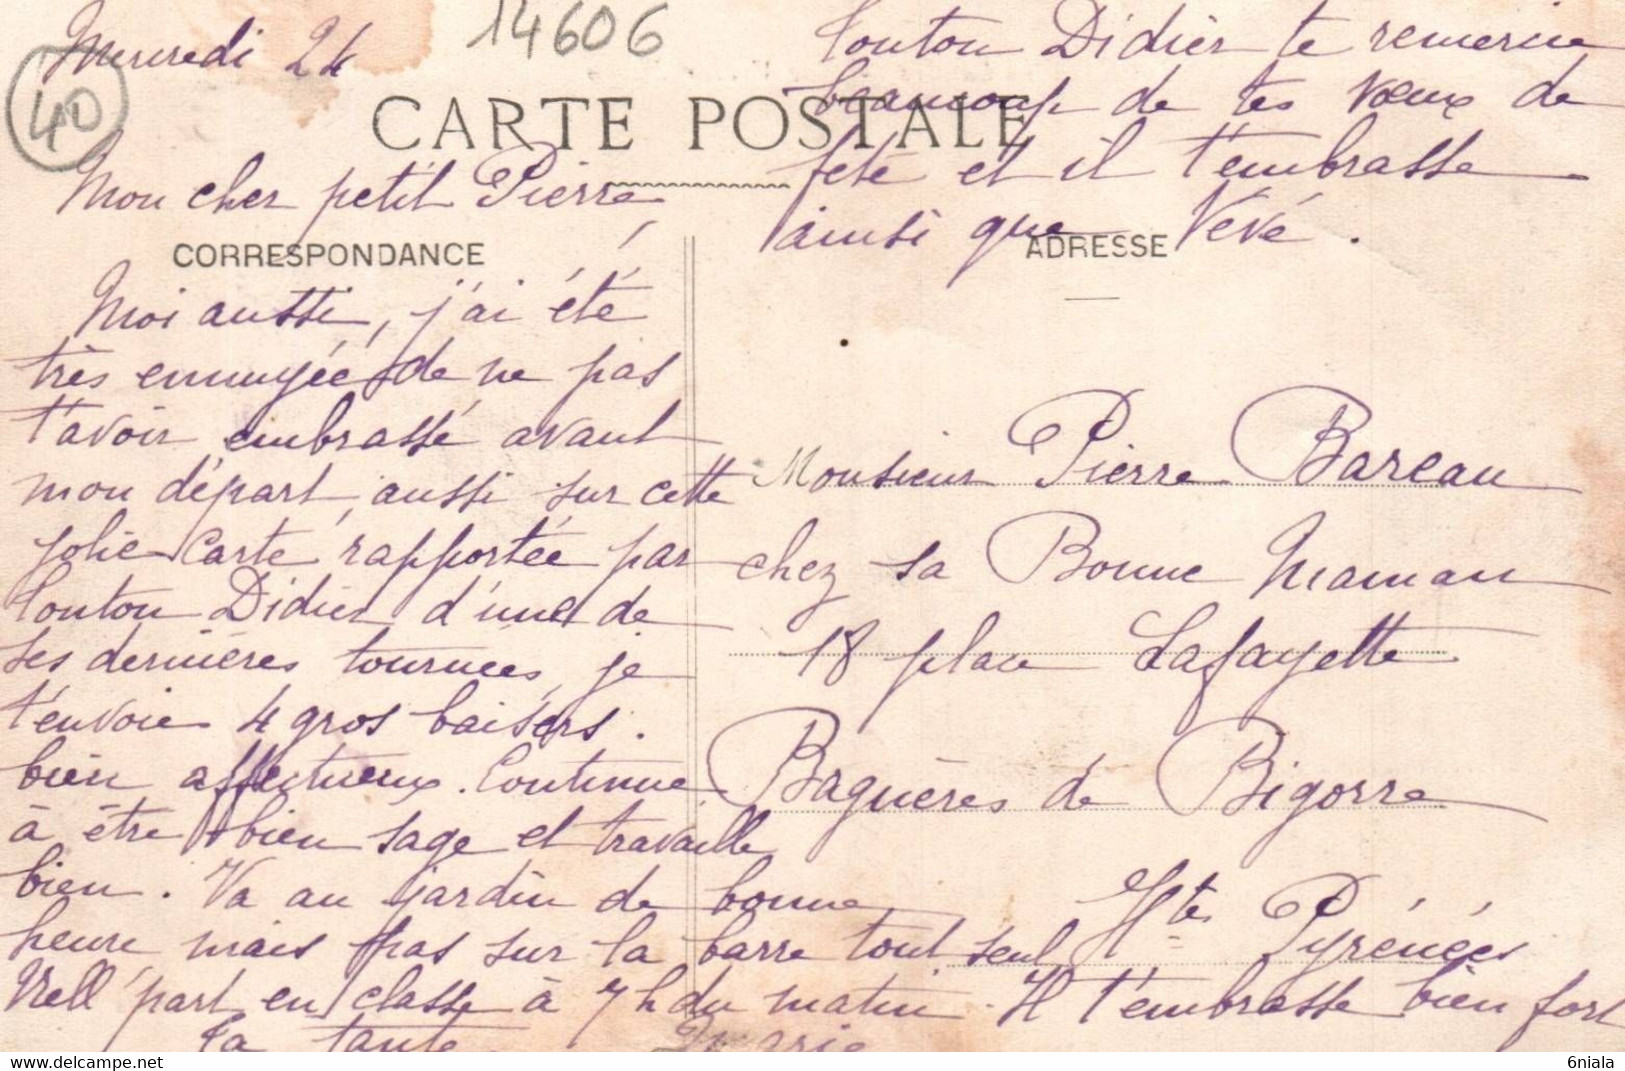 Mercredi 24
14606
40
CARTE POSTALE
Mon cher petit Pierre,
CORRESPONDANCE
Moi aussi, j'ai été
très ennuyée de ne pas
t'avoir embrassé avant
mon départ, aussi sur cette
jolie carte rapportée par
Tonton Didier d'une de
ses dernières tournées, je
t'envoie 4 gros baisers
bien affectueux. Continue
à être bien sage et travaille
bien. Va au jardin de bonne
heure mais pas sur la barre tout seul
part en classe à 7h du matin. Il t'embrasse bien fort
Ta tante Marie
Tonton Didier te remercie
beaucoup de tes vœux de
fête et il t'embrasse
ainsi que Vévé.
ADRESSE
Monsieur Pierre Bareau
chez sa Bonne Maman
18 place Lafayette
Bagnères de Bigorre
Htes Pyrénées
6niala